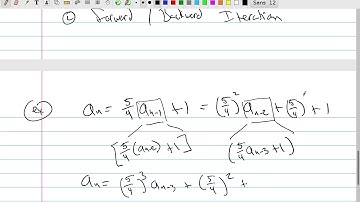 Sans 12
② Forward / Backward Iteration
ex aₙ = 5/4 aₙ₋₁ + 1 = (5/4)² aₙ₋₂ + (5/4)¹ + 1
[5/4(aₙ₋₂) + 1] (5/4 aₙ₋₃ + 1)
aₙ = (5/4)³ aₙ₋₃ + (5/4)² +